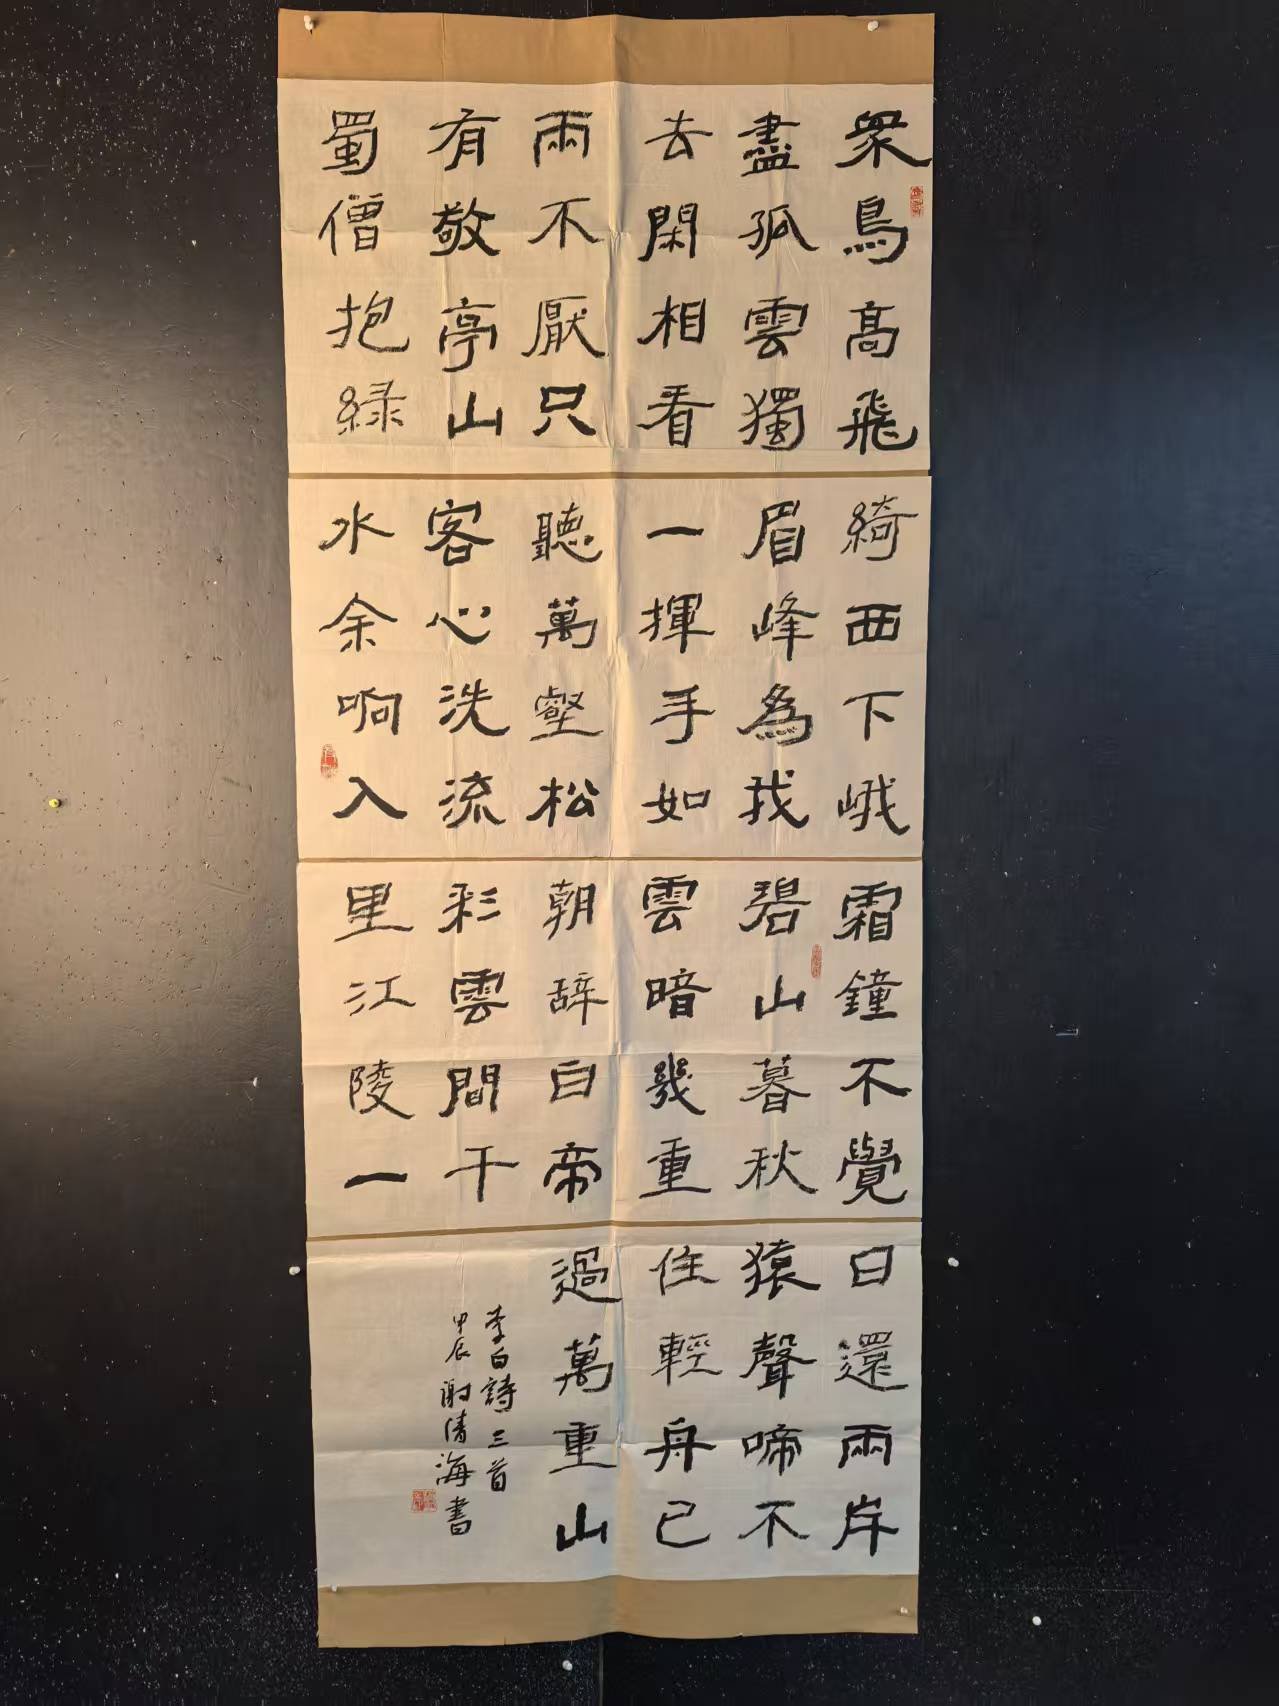 眾鳥高飛
盡孤雲獨
去閑相看
兩不厭只
有敬亭山
蜀僧抱緑
綺西下峨
眉峰為我
一揮手如
聽萬壑松
客心洗流
水余响入
霜鐘不覺
碧山暮秋
雲暗幾重
朝辞白帝
彩雲間千
里江陵一
日還兩岸
猿聲啼不
住輕舟已
過萬重山
李白詩三首
甲辰謝清海書